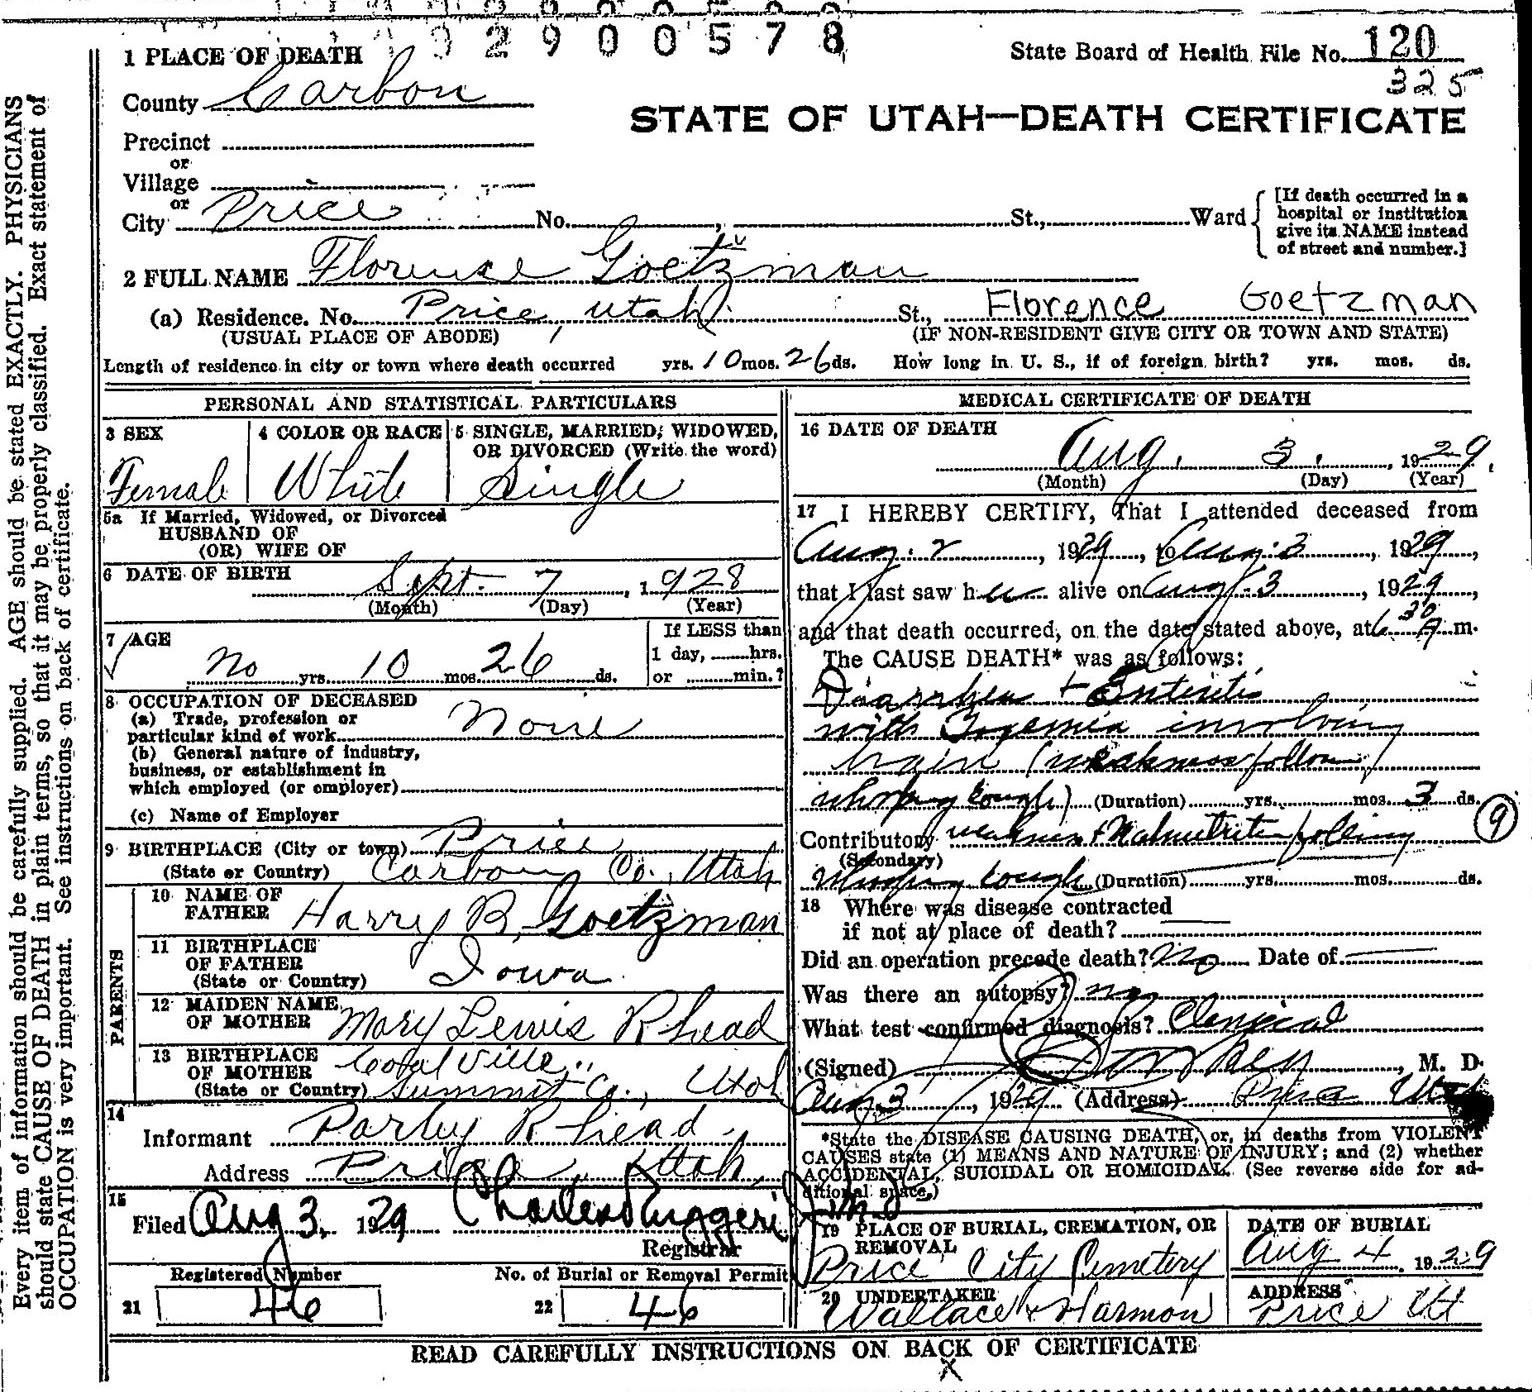 92900578
1 PLACE OF DEATH
State Board of Health File No. 120
325
County Carbon
STATE OF UTAH—DEATH CERTIFICATE
Precinct
or
Village
or
City Price No. St., Ward
[If death occurred in a
hospital or institution
give its NAME instead
of street and number.]
2 FULL NAME Florence Goetzman
(a) Residence. No. Price, Utah St., Florence Goetzman
(USUAL PLACE OF ABODE) (IF NON-RESIDENT GIVE CITY OR TOWN AND STATE)
Length of residence in city or town where death occurred yrs. 10 mos. 26 ds. How long in U. S., if of foreign birth? yrs. mos. ds.
PERSONAL AND STATISTICAL PARTICULARS
3 SEX 4 COLOR OR RACE 5 SINGLE, MARRIED, WIDOWED,
OR DIVORCED (Write the word)
Female White Single
5a If Married, Widowed, or Divorced
HUSBAND OF
(OR) WIFE OF
6 DATE OF BIRTH Sept. 7, 1928
(Month) (Day) (Year)
7 AGE
If LESS than
1 day, hrs.
or min.?
no yrs. 10 mos. 26 ds.
8 OCCUPATION OF DECEASED
(a) Trade, profession or
particular kind of work None
(b) General nature of industry,
business, or establishment in
which employed (or employer)
(c) Name of Employer
9 BIRTHPLACE (City or town) Price
(State or Country) Carbon Co., Utah
PARENTS
10 NAME OF
FATHER Harry B. Goetzman
11 BIRTHPLACE
OF FATHER
(State or Country) Iowa
12 MAIDEN NAME
OF MOTHER Mary Lewis Rhead
13 BIRTHPLACE
OF MOTHER Coalville,
(State or Country) Summit Co., Utah
14
Informant Parley Rhead
Address Price, Utah
15
Filed Aug 3, 1929 Charles Ruggeri M.D
Registrar
Registered Number No. of Burial or Removal Permit
21 46 22 46
MEDICAL CERTIFICATE OF DEATH
16 DATE OF DEATH
Aug. 3, 1929.
(Month) (Day) (Year)
17 I HEREBY CERTIFY, That I attended deceased from
Aug. 2, 1929, to Aug. 3, 1929,
that I last saw her alive on Aug. 3, 1929,
and that death occurred, on the date stated above, at 6 30 A m.
The CAUSE DEATH* was as follows:
Diarrhea + Enteritis
with Toxemia involving
brain (weakness follow
whooping cough) (Duration) yrs. mos. 3 ds.
9
Contributory weakness + Malnutrition following
(Secondary)
Whooping cough (Duration) yrs. mos. ds.
18 Where was disease contracted
if not at place of death?
Did an operation precede death? No Date of
Was there an autopsy? no
What test confirmed diagnosis? Clinical
(Signed) M. D.
Aug 3, 1929 (Address) Price Utah
*State the DISEASE CAUSING DEATH, or, in deaths from VIOLENT
CAUSES state (1) MEANS AND NATURE OF INJURY; and (2) whether
ACCIDENTAL, SUICIDAL OR HOMICIDAL. (See reverse side for ad-
ditional space.)
19 PLACE OF BURIAL, CREMATION, OR
REMOVAL
Price City Cemetery
DATE OF BURIAL
Aug 4, 1929
20 UNDERTAKER
Wallace & Harmon
ADDRESS
Price Ut
READ CAREFULLY INSTRUCTIONS ON BACK OF CERTIFICATE
X
Every item of information should be carefully supplied. AGE should be stated EXACTLY. PHYSICIANS
should state CAUSE OF DEATH in plain terms, so that it may be properly classified. Exact statement of
OCCUPATION is very important. See instructions on back of certificate.